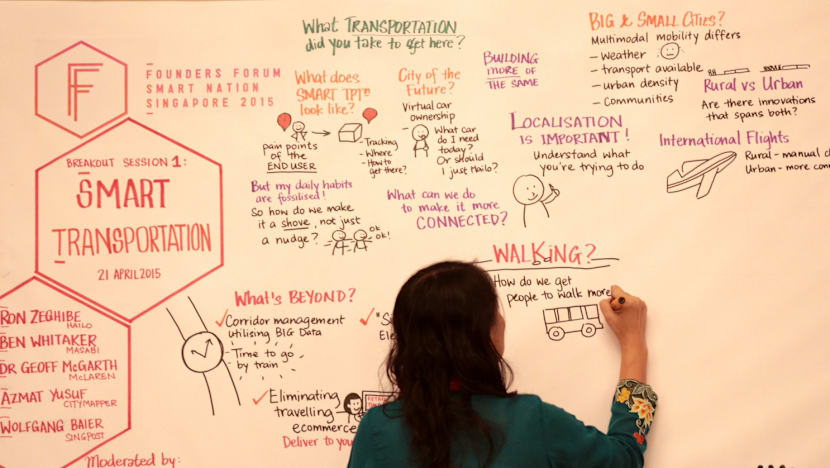 F
FOUNDERS FORUM
SMART NATION
SINGAPORE 2015
BREAKOUT SESSION 1:
SMART
TRANSPORTATION
21 APRIL 2015
RON ZEGHIBE
HAILO
BEN WHITAKER
MASABI
DR GEOFF McGARTH
McLAREN
AZMAT YUSUF
CITYMAPPER
WOLFGANG BAIER
SINGPOST
Moderated by:
What TRANSPORTATION
did you take to get here?
What does
SMART TPT
look like?
pain points
of the
END USER
- Tracking
- Where
- How to
get there?
City of the
Future?
Virtual car
ownership
What car
do I need
today?
Or should
I just Hailo?
BUILDING
MORE OF
THE SAME
BIG & SMALL CITIES?
Multimodal mobility differs
- Weather
- transport available
- urban density
- Communities
Rural vs Urban
Are there innovations
that spans both?
LOCALISATION
IS IMPORTANT!
Understand what
you're trying to do
International Flights
Rural - manual
Urban - more
But my daily habits
are fossilised!
So how do we make
it a shove, not just
a nudge?
Ok
Ok!
What can we do
to make it more
CONNECTED?
WALKING?
How do we get
people to walk more
What's BEYOND?
Corridor management
utilising BIG Data
- Time to go
by train
Eliminating
travelling
ecommerce
Deliver to you